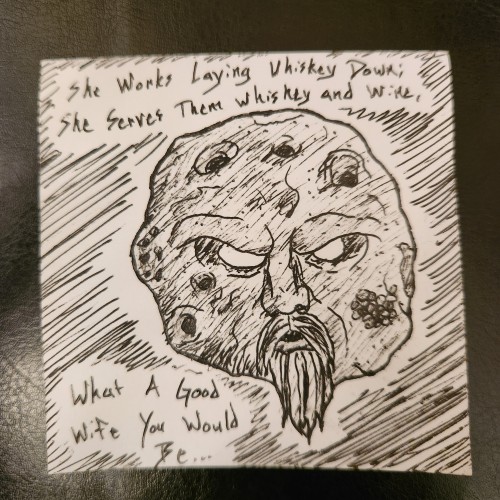 She Works Laying Whiskey Down;
She Serves Them Whiskey and Wine,
What A Good
Wife You Would
Be...